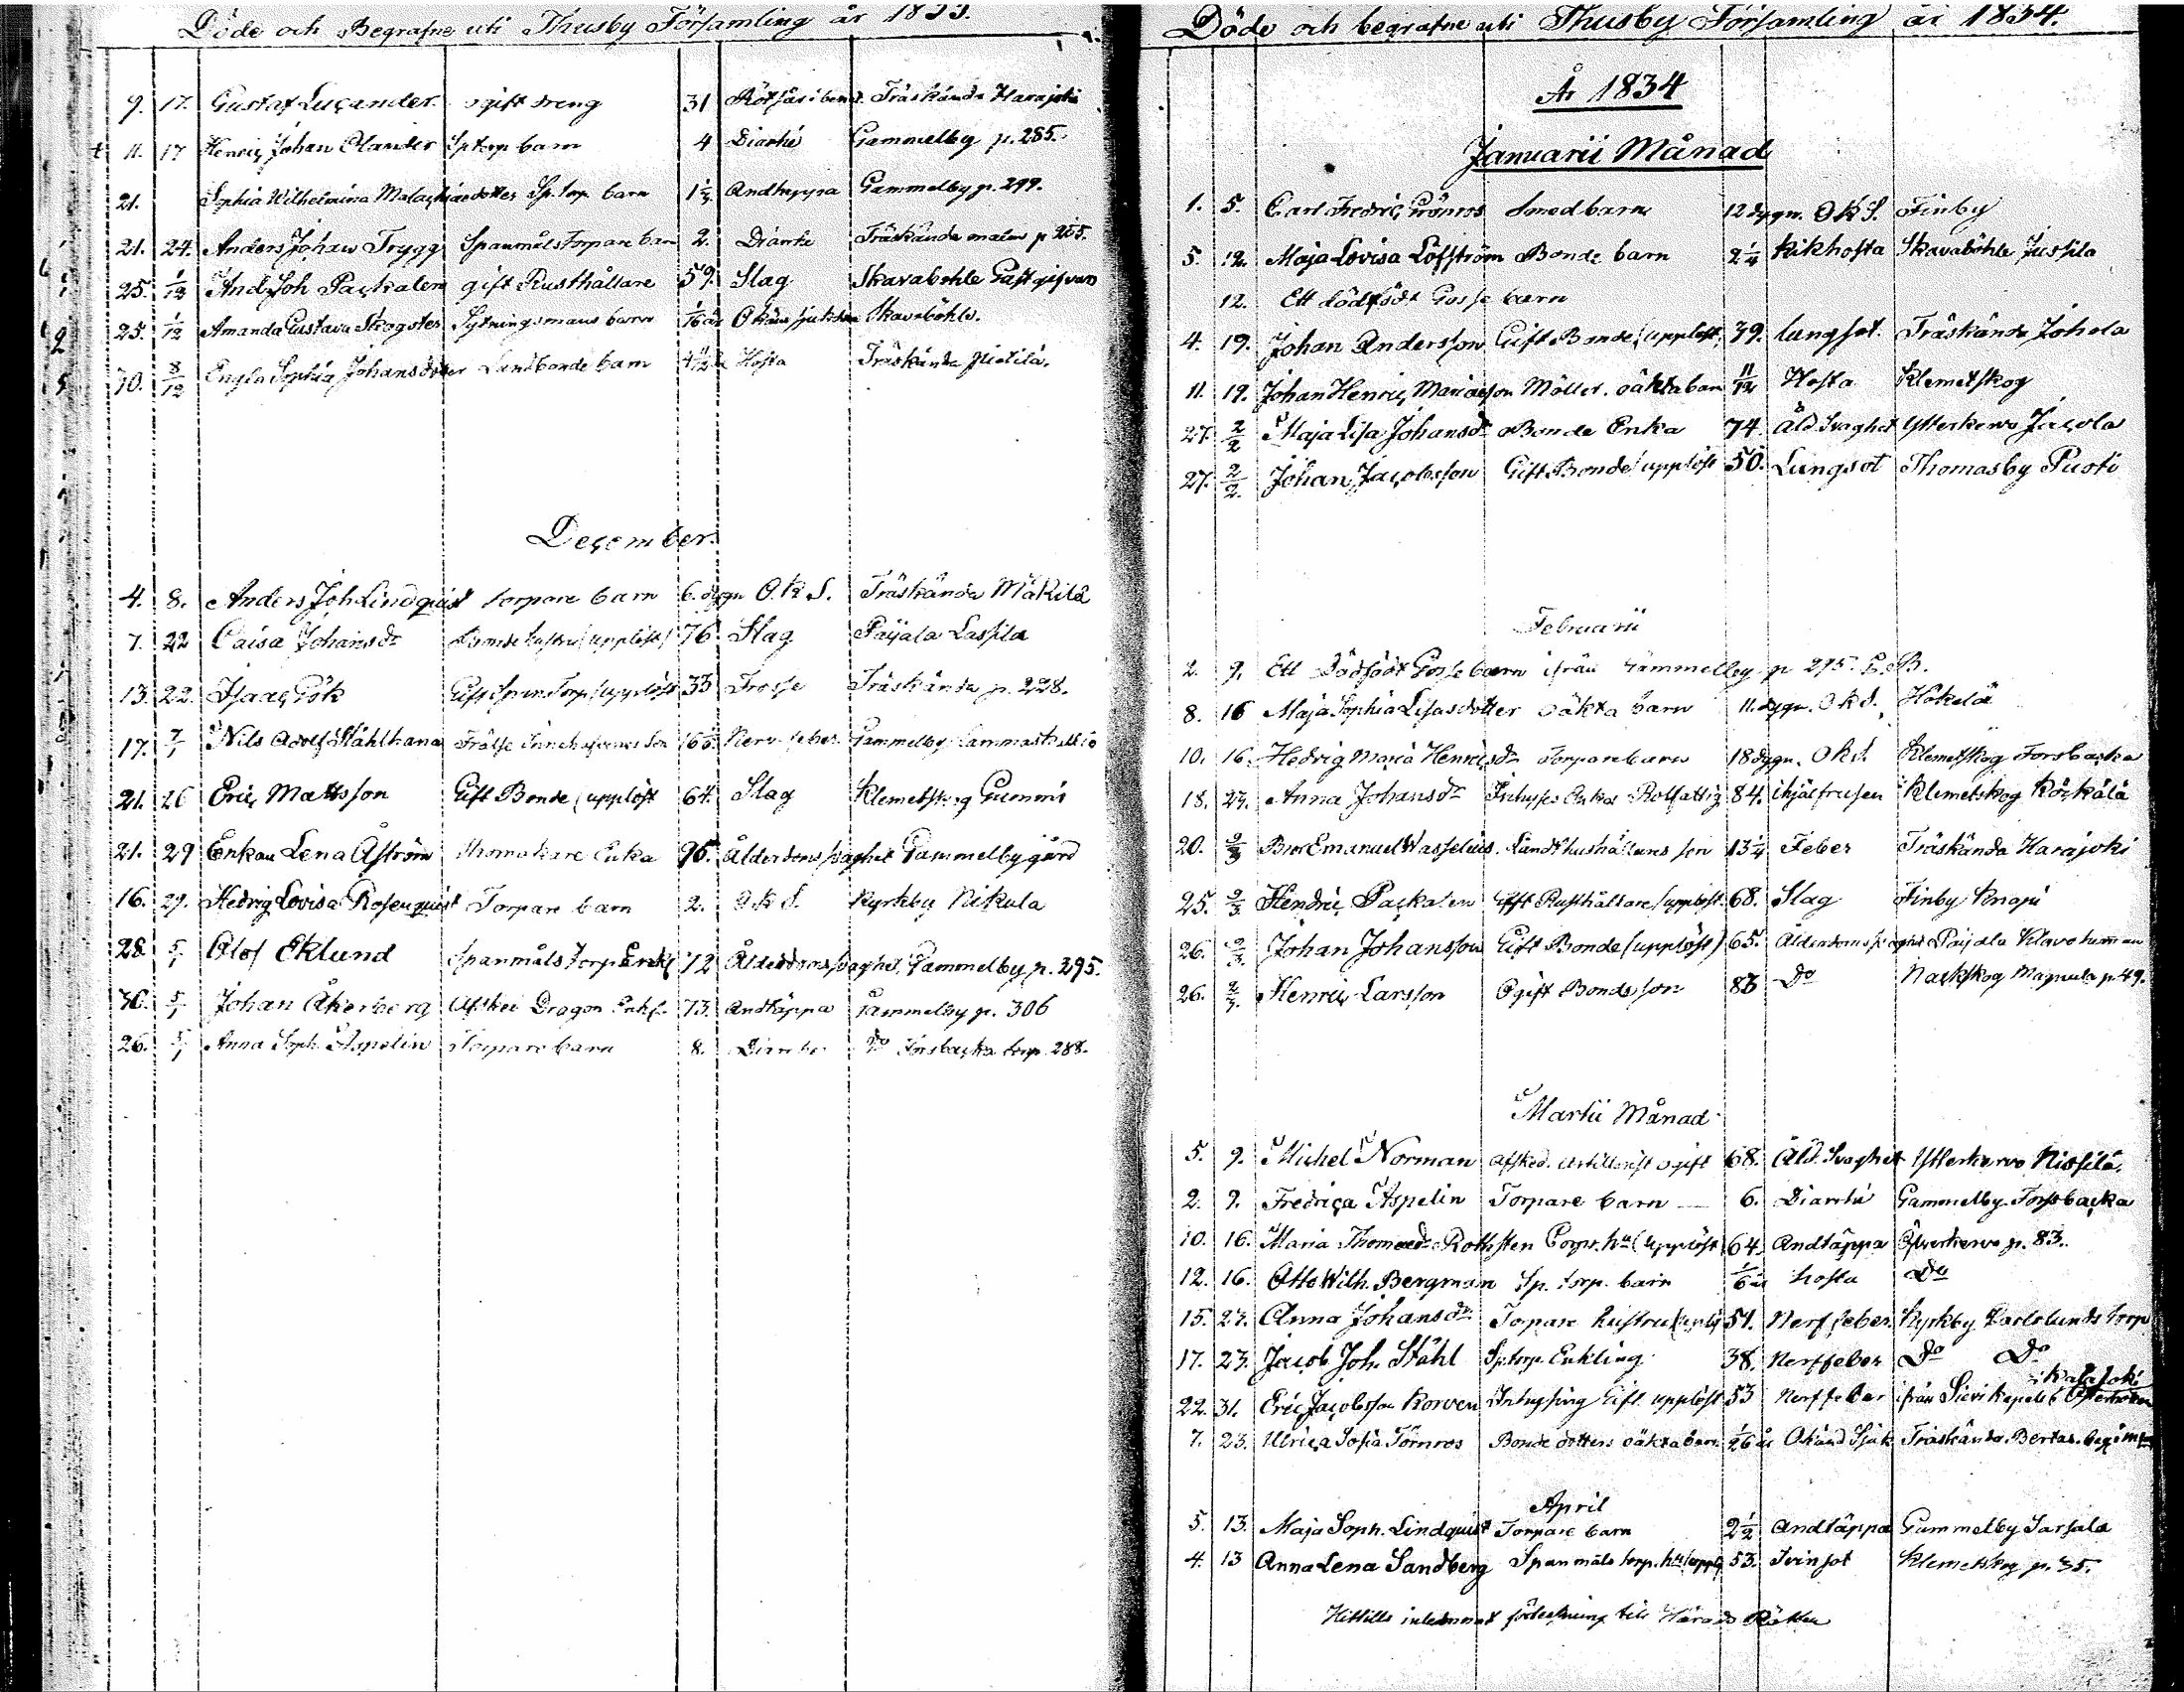 Döde och Begrafne uti Thusby Församling år 1833.
9. 17. Gustaf Luçander ogift dreng 31 Rötsår i benet Träskända Harajoki
11. 17 Henriç Johan Olander Sptorp barn 4 Diarhé Gammelby p. 285.
21. Sophia Wilhelmina Malachiaedotter Sp. torp. barn Andtäppa Gammelby p. 299.
21. 24. Anders Johan Trygg Spanmåls Torpare barn 2. Diarhe Träskända
25. 1/12 And. Joh Paçkalen gift Rusthållare 59. Slag Skavaböhle Gästgifvars
25. 1/12 Amanda Gustava Skogster Sytningsmans barn 1/16 år Skavaböhle.
30. 8/12 Engla Sophia Johansdotter Landbonde barn Hosta Träskända Pietilä.
Deçember.
4. 8. Anders Joh Lindquist torpare barn 6. dygn O. K. S. Träskända Mäkilä
7. 22 Caisa Johansdr Bonde hustru (upplöst) 76 Slag Paijala Lassila
13. 22. Isaaç Gök Gift Span. Torp. (upplöst 33 Frossa Träskända p. 228.
17. 7/1 Nils Adolf Stählhana Frälse Innehafvares Son feber Gammelby
21. 26 Eriç Mattsson Gift Bonde (upplöst 64. Slag Klemetskog Gummis
21. 29 Enkan Lena Åström Enka 95. Ålderdoms svaghet Gammelby gård
16. 29. Hedvig Lovisa Rosenquist Torpare barn 2. O K S. Kyrkby Nikula
28 5/1 Olof Eklund Spanmåls Torp Enkl 72 Ålderdoms svaghet. Gammelby p. 295.
30. 5/1 Johan Åkerberg Afsked Dragon Enkl. 73. Andtäppa Gammelby p. 306
26. 5/1 Anna Soph. Aspelin Torpare barn 8. Diarrhe Do Forsbaçka torp. 288.
Döde och begrafne uti Thusby Församling år 1834.
År 1834
Januarii Månad
1. 5. Carl Fredriç Grönros Smed barn 12 dygn. O K S. Finby
5. 12. Maja Lovisa Löfström Bonde barn 2 1/4 Kikhosta Skavaböhle Jussila
12. Ett dödfödt Gosse barn
4. 19. Johan Andersson Gift Bonde (upplöst 39. lungsot. Träskända Johola
11. 19. Johan Henriç Mariaesson Möller. oäkta barn 11/12 Hosta Klemetskog
27. 2/2 Maja Lisa Johansdr Bonde Enka 74 Åld. Svaghet Ytterkervo Jaçola
27. 2/2. Johan Jaçobsson Gift Bonde (upplöst 50. Lungsot Thomasby Pusti
Februarii
2. 9. Ett Dödfödt Gosse barn ifrån Gammelby p 295.
8. 16 Maja Sophia Lisasdotter oäkta barn 11. dygn. O K S. Hökelä
10. 16. Hedvig Maria Henriçsdr Torpare barn 18 dygn. O K S. Klemetskog Forsbaçka
18. 23. Anna Johansdr Inhyses Enka Rotfattig 84. ihjälfrusen Klemetskog
20. 2/3 Bror Emanuel Wasselius. Landthushållares son 13 1/4 Feber Träskända Harajoki
25. 2/3. Hendriç Paçkalen Gift Rusthållare (upplöst. 68. Slag Finby
26. 2/3. Johan Johansson Gift Bonde (upplöst) 65. Ålderdoms svaghet Paijala
26. 2/3. Henriç Larsson Ogift Bonde son 83 Do Naçkskog p 49.
Martii Månad
5. 9. Michel Norman afsked. Artillerist ogift 68. Åld. Svaghet Ytterkervo Nissilä.
2. 9. Fredriça Aspelin Torpare barn 6. Diarrhé Gammelby Forsbaçka
10. 16. Maria Thomaedr Rothsten (upplöst 64. Andtäppa Öfverkervo p. 83.
12. 16. Otto Wilh. Bergman Sp. torp. barn 1/6 år hosta Do
15. 23. Anna Johansdr Torpare hustru 51. Nerffeber. Kyrkby Carlslunds torp
17. 23. Jacob Joh. Ståhl Sp. torp. Enkling 38. Nerffeber Do Do
22. 31. Eriç Jaçobsson Korven Inhysing Gift upplöst 53 Nerffeber ifrån Sievi Kapell i Kalajoki Österbotten
7. 23. Ulriça Sofia Törnros Bonde dotters oäkta barn 1/26 år Okänd Sjuk Träskända
April
5. 13. Maja Soph. Lindquist Torpare barn 2 1/2 Andtäppa Gammelby Sarsala
4. 13 Anna Lena Sandberg Spanmåls torp. 53. Tvinsot Klemetskog p. 35.
Hittills inlemnat förteckning till Härads Rätten